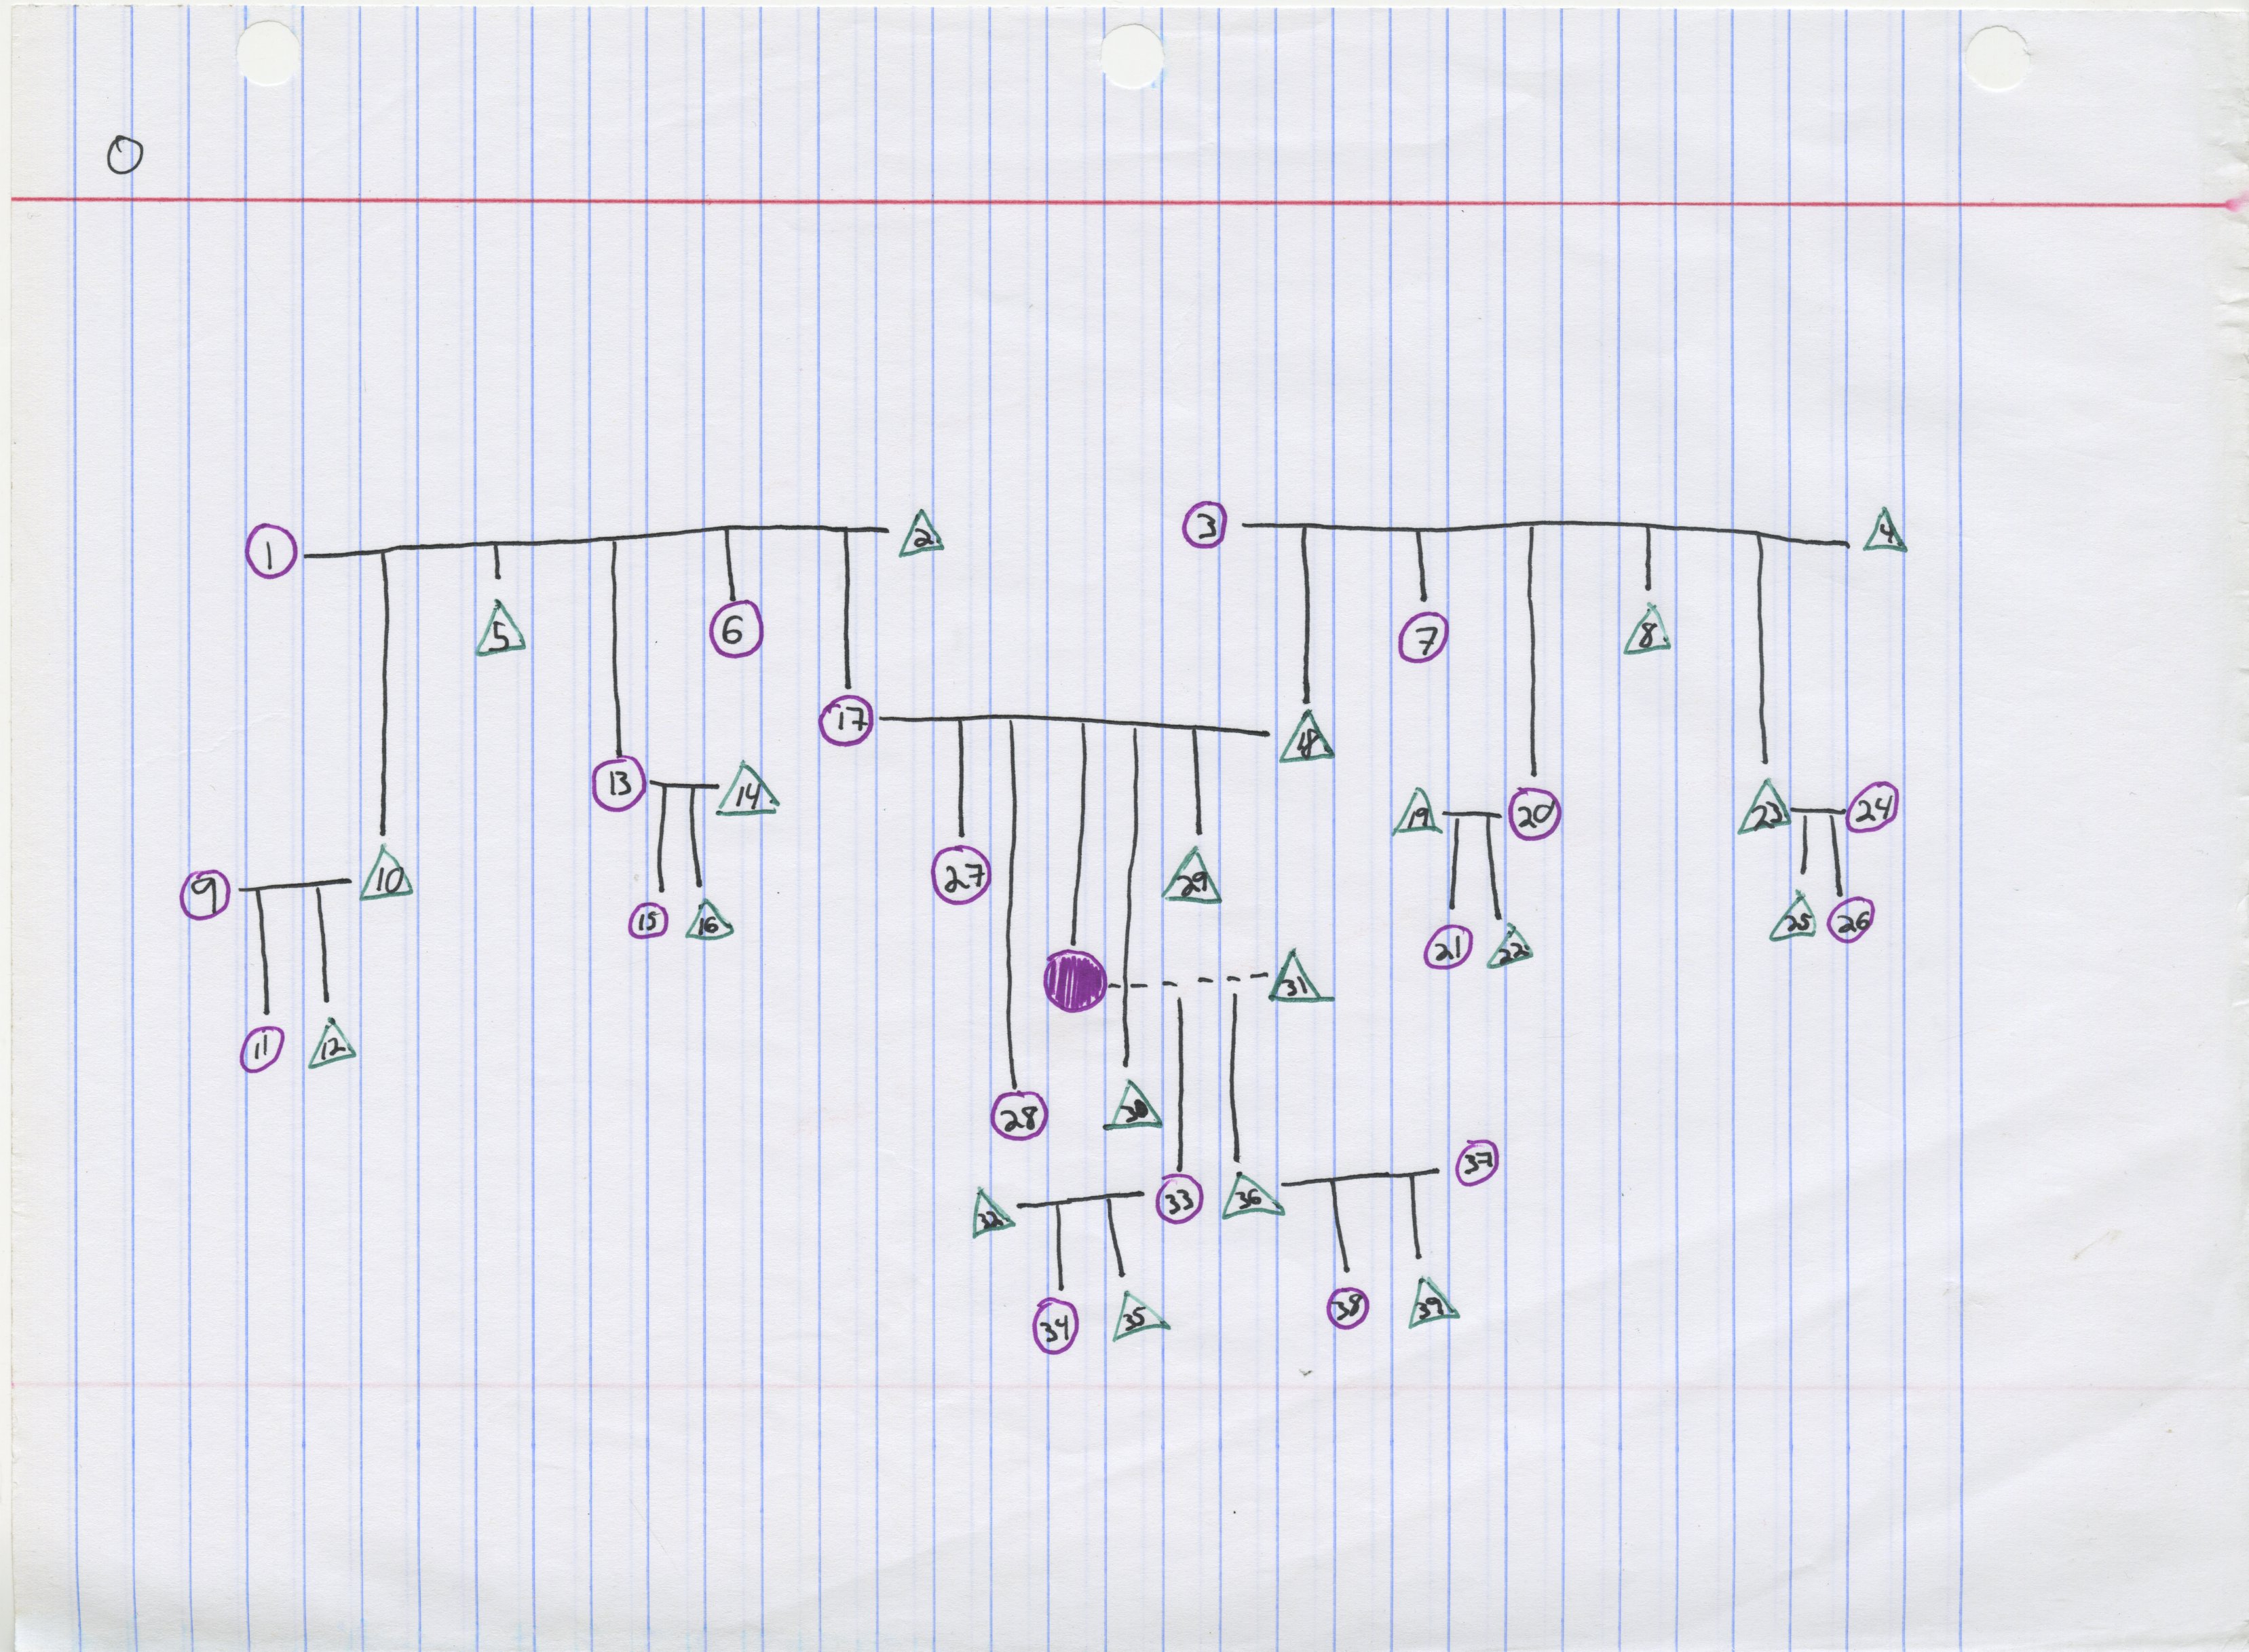 0
1 2 3 4
5 6 7 8
17 18
13 14 19 20 23 24
9 10 27 29
15 16 21 22 25 26
31
11 12
28 30
37
32 33 36
34 35 38 39